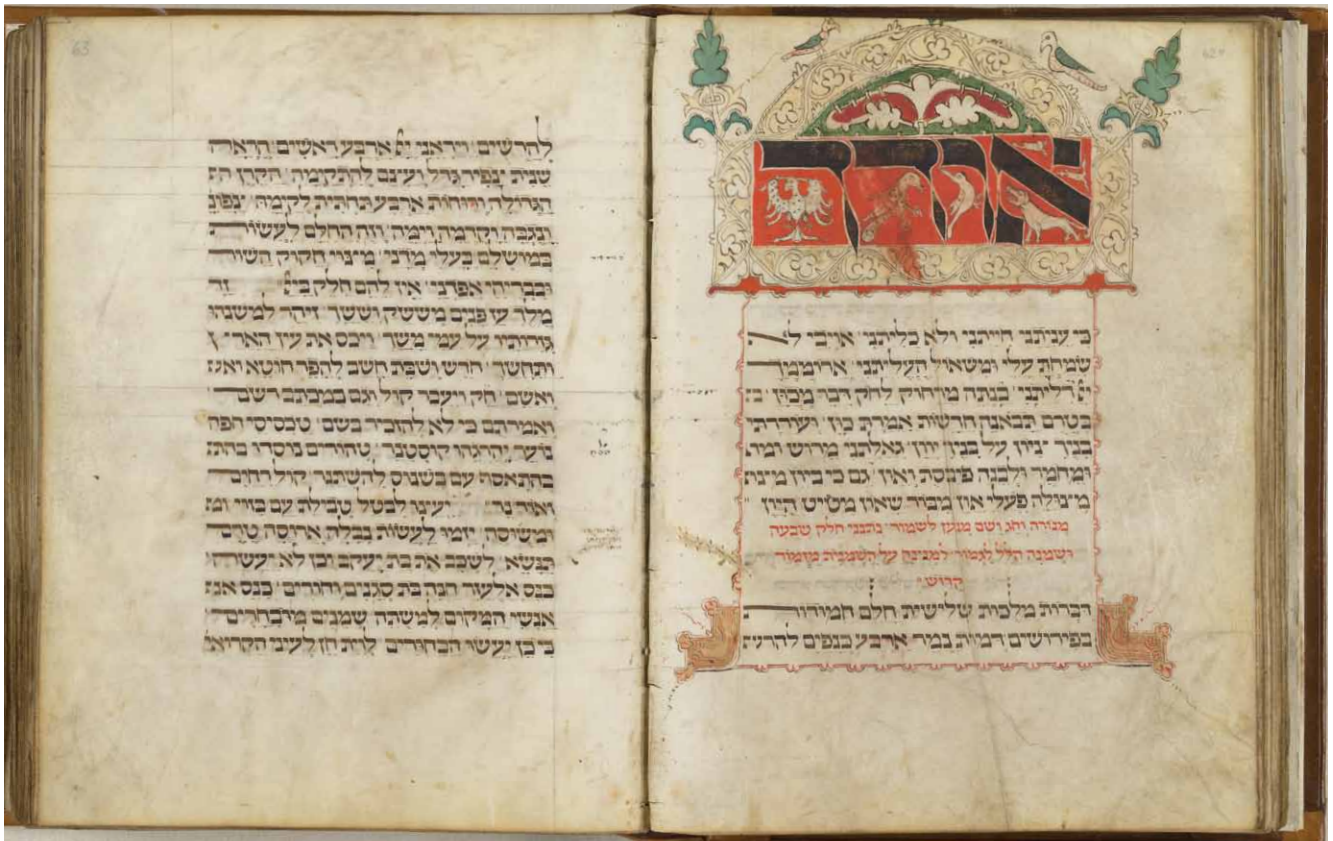 62v
אודך
כי עניתני חייתני ולא כליתני אויבי לא
שמחת עלי ומשאול העליתני ארוממך
דליתני בנתה מרחוק לחק דבר מכון
בטרם תבאנה חדשות אמרת כיון ועוררתי
בניך ציון על בניך יון גאלתני מרוש ומת
ומחמר ולבנה גם כי ביון מצות
מצולה פעלי און מבור שאון משיט היון
ושם לשמור נתנני חלק שבעה
ושמנה הלל לגמור למנצח על השמינית מזמור
קדוש
הברות מלכות שלישית חלם חמודות
בפירושים דמות נמר ארבע כנפים להרעת
63
להרשים ויראני ארבע ראשים הראה
שנית וצפיר גדל ועצם הקרן הז
הגדולה ורוחות ארבע לקומה צפונ
ונגבה וקדמה וימה וזה החלם לעשות
במושלם בעלי מדני מצוי חקוק השוד
ובבריחי אפדני אין להם חלק בית זד
מלך עז פנים מששק וששך זיהר למשנהו
גזרותיו על עמי משך ויכס את עין האר ץ
ותחשך חדש ושבת חשב להפר חוטא ואנז
ואשם חק ויעבר קול וגם במכתב רשם
ואמרתם כי לא להזכיר בשם טפסיסי הפח
נוער יהרגהו טהורים נוסדו בהת
בהתאסף עם קול רחים
ואור נר יעצו לבטל טבילת עם בזוי ומ
ומשיסה יזמו לעשות נבלה ארוסה טרם
תנשא לשכב את בת יעקב וכן לא יעשה
כנס אלעזר הנה בת סגנים וחורים כנס אנז
אנשי המקום למשתה שמנים
כי כן יעשו הבחורים לוית חן לעיני הקרואי